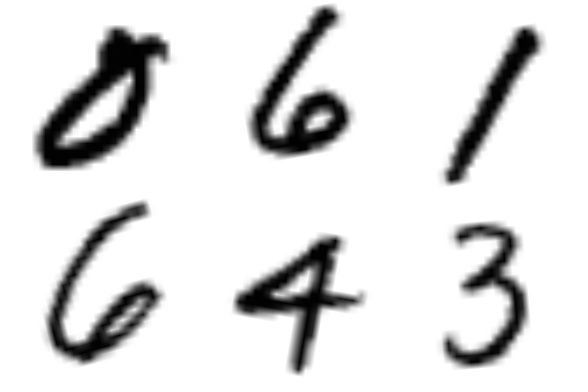 0 6 1
6 4 3